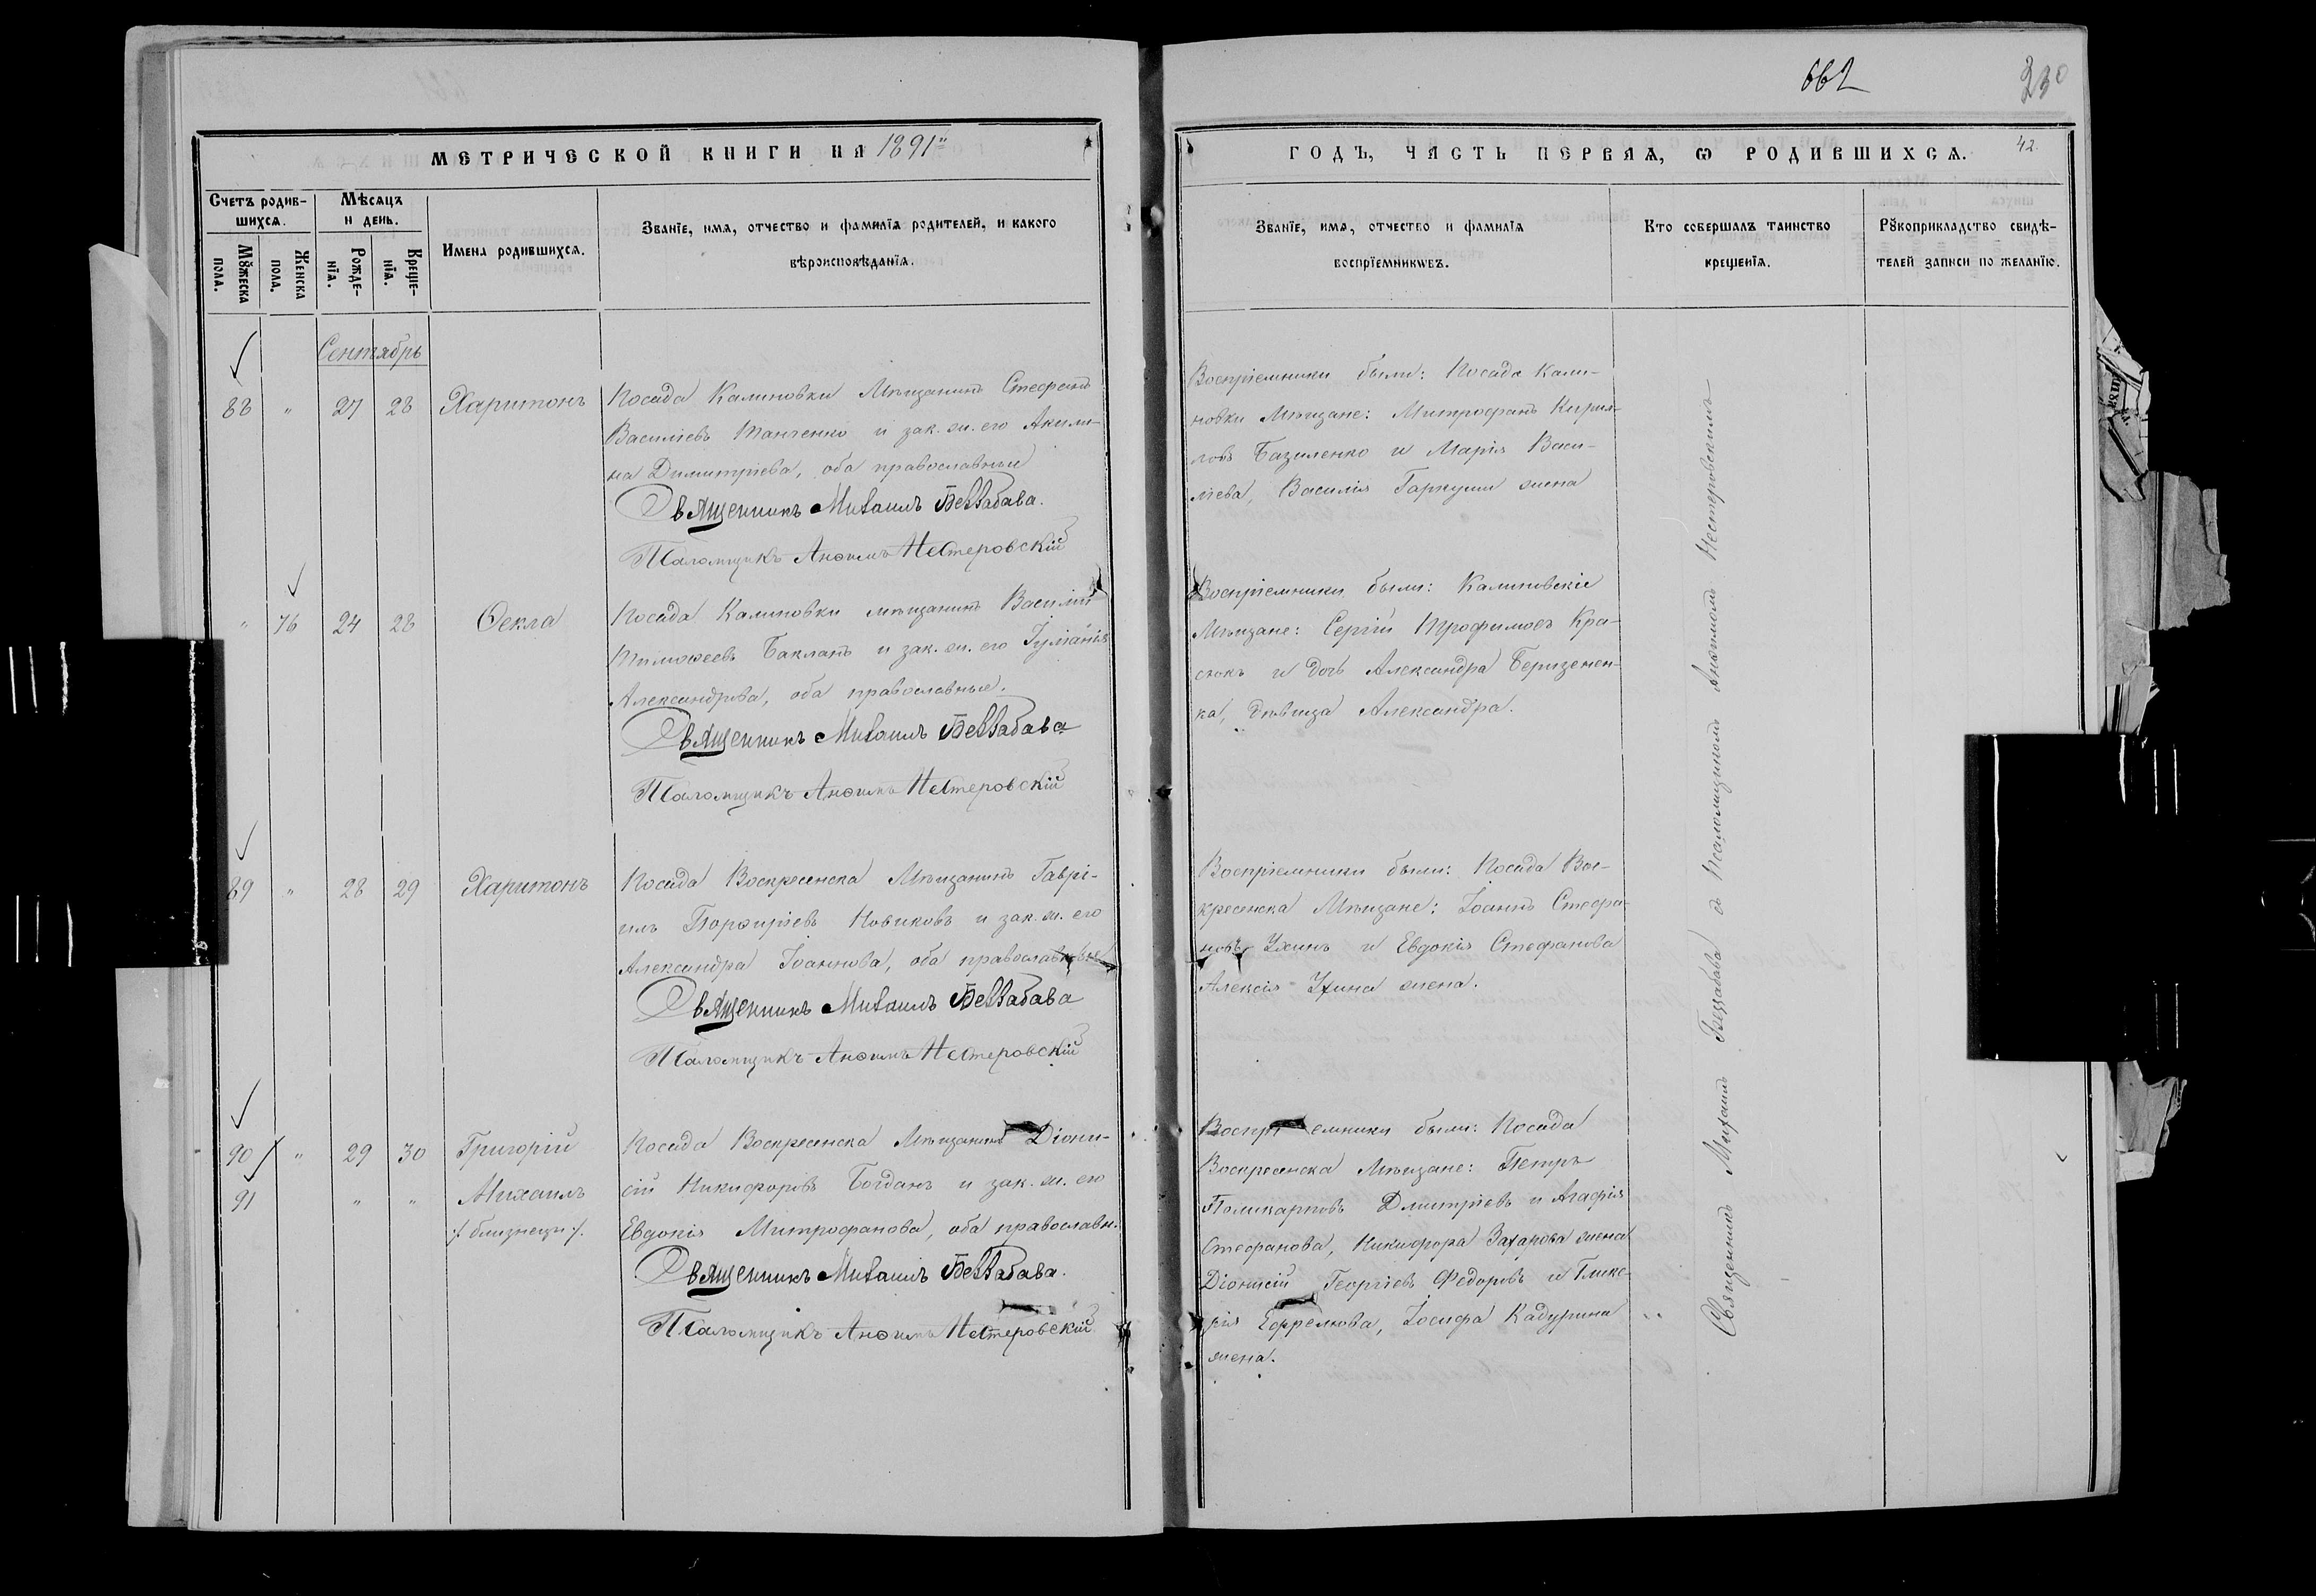 662
230
МЕТРИЧЕСКОЙ КНИГИ НА 1891й
ГОДЪ, ЧАСТЬ ПЕРВАЯ, Ѡ РОДИВШИХСЯ.
42.
Счетъ родив-
шихся.
Мѣсяцъ
и день.
Мужеска
пола.
Женска
пола.
Рожде-
нїя.
Креще-
нїя.
Имена родившихся.
Званїе, имя, отчество и фамилїя родителей, и какого
вѣроисповѣданїя.
Званїе, имя, отчество и фамилїя
воспрїемникѡвъ.
Кто совершалъ таинство
крещенїя.
Рꙋкоприкладство свидѣ-
телей записи по желанїю.
Сентябрь
88 " 27 28 Харитонъ
Посада Калиновки Мѣщанинъ Стефанъ
Василіевъ Танченко и зак. ж. его Акили-
на Димитріева, оба православные
Священникъ Михаилъ Беззабава.
Псаломщикъ Анѳимъ Нестеровскій
Воспріемники были: Посада Кали-
новки Мѣщане: Митрофанъ Кирил-
ловъ Базиленко и Марія Васи-
ліева, Василія Гаркуши жена
" 76 24 28 Ѳекла
Посада Калиновки мѣщанинъ Василій
Тимоѳеевъ Бакланъ и зак. ж. его Іуліанія
Александрова, оба православные.
Священникъ Михаилъ Беззабава
Псаломщикъ Анѳимъ Нестеровскій
Воспріемники были: Калиновскіе
Мѣщане: Сергій Трофимовъ Кра-
сюкъ и дочь Александра Беризенен-
ка, дѣвица Александра.
89 " 28 29 Харитонъ
Посада Воскресенска Мѣщанинъ Гаврі-
илъ Порфиріевъ Новиковъ и зак. ж. его
Александра Іоаннова, оба православные
Священникъ Михаилъ Беззабава
Псаломщикъ Анѳимъ Нестеровскій
Воспріемники были: Посада Вос-
кресенска Мѣщане: Іоаннъ Стефа-
новъ Ухинъ и Евдокія Стефанова
Алексія Ухина жена.
90 " 29 30 Григорій
91 " " Михаилъ
/: близнецы :/.
Посада Воскресенска Мѣщанинъ Діони-
сій Никифоровъ Богданъ и зак. ж. его
Евдокія Митрофанова, оба православн.
Священникъ Михаилъ Беззабава.
Псаломщикъ Анѳимъ Нестеровскій
Воспріемники были: Посада
Воскресенска Мѣщане: Петръ
Поликарповъ Дмитріевъ и Агафія
Стефанова, Никифора Захарова жена
Діонисій Георгіевъ Федоровъ и Глике-
рія Ефремова, Іосифа Кадурина
жена.
Священникъ Михаилъ Беззабава съ Псаломщикомъ Анѳимомъ Нестеровскимъ